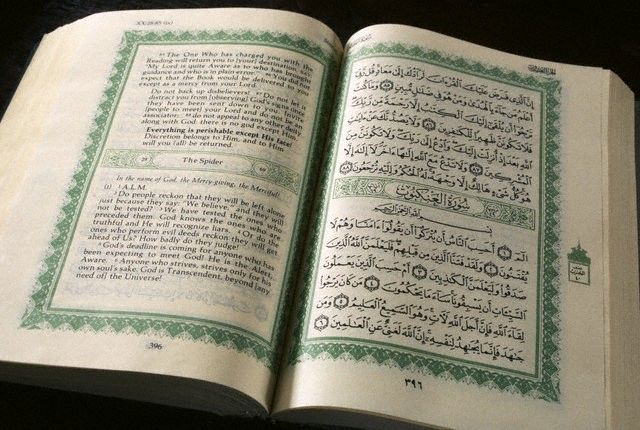 XX:28:85 (ix)
85 The One Who has charged you with the
Reading will return you to [your] destiny
"My Lord is quite Aware as to who has brought
guidance and who is in plain error." 86 You did not
expect that the Book would be delivered to you
except as a mercy from your Lord.
Do not back up disbelievers! 87 Do not let it
distract you from [observing] God's signs once
they have been sent down to you.
[people to meet] your Lord and do not be an
associator; 88 do not appeal to any other deity
along with God: there is no god except Him.
Everything is perishable except His face!
Discretion belongs to Him, and to Him
will you (all) be returned.
29 The Spider 60
In the name of God, the Mercy-giving, the Merciful!
(i) 1 A.L.M.
2 Do people reckon that they will be left alone
just because they say: "We believe," and they will
not be tested? 3 We have tested the ones who
preceded them. God knows the ones who are
truthful and He will recognize liars. 4 Or do the
ones who perform evil deeds reckon they will get
ahead of Us? How badly do they judge!
5 God's deadline is coming for anyone who has
been expecting to meet God! He is the Alert,
Aware. 6 Anyone who strives, strives only for his
own soul's sake. God is Transcendent, beyond [any
need of] the Universe!
396
إِنَّ الَّذِي فَرَضَ عَلَيْكَ الْقُرْءَانَ لَرَآدُّكَ إِلَىٰ مَعَادٍ قُل رَّبِّي
أَعْلَمُ مَن جَآءَ بِالْهُدَىٰ وَمَنْ هُوَ فِي ضَلَٰلٍ مُّبِينٍ ٨٥ وَمَا كُنتَ
تَرْجُوٓا أَن يُلْقَىٰٓ إِلَيْكَ الْكِتَٰبُ إِلَّا رَحْمَةً مِّن رَّبِّكَ
فَلَا تَكُونَنَّ ظَهِيرًا لِّلْكَٰفِرِينَ ٨٦ وَلَا يَصُدُّنَّكَ عَنْ ءَايَٰتِ
اللَّهِ بَعْدَ إِذْ أُنزِلَتْ إِلَيْكَ وَادْعُ إِلَىٰ رَبِّكَ وَلَا تَكُونَنَّ مِنَ
الْمُشْرِكِينَ ٨٧ وَلَا تَدْعُ مَعَ اللَّهِ إِلَٰهًا ءَاخَرَ لَآ إِلَٰهَ إِلَّا
هُوَ كُلُّ شَيْءٍ هَالِكٌ إِلَّا وَجْهَهُ لَهُ الْحُكْمُ وَإِلَيْهِ تُرْجَعُونَ ٨٨
سُورَةُ الْعَنكَبُوتِ
بِسْمِ اللَّهِ الرَّحْمَٰنِ الرَّحِيمِ
الٓمٓ ١ أَحَسِبَ النَّاسُ أَن يُتْرَكُوٓا أَن يَقُولُوٓا ءَامَنَّا وَهُمْ لَا
يُفْتَنُونَ ٢ وَلَقَدْ فَتَنَّا الَّذِينَ مِن قَبْلِهِمْ فَلَيَعْلَمَنَّ اللَّهُ الَّذِينَ
صَدَقُوا وَلَيَعْلَمَنَّ الْكَٰذِبِينَ ٣ أَمْ حَسِبَ الَّذِينَ يَعْمَلُونَ
السَّيِّـَٔاتِ أَن يَسْبِقُونَا سَآءَ مَا يَحْكُمُونَ ٤ مَن كَانَ يَرْجُوا
لِقَآءَ اللَّهِ فَإِنَّ أَجَلَ اللَّهِ لَءَاتٍ وَهُوَ السَّمِيعُ الْعَلِيمُ ٥ وَمَن
جَٰهَدَ فَإِنَّمَا يُجَٰهِدُ لِنَفْسِهِۦٓ إِنَّ اللَّهَ لَغَنِيٌّ عَنِ الْعَٰلَمِينَ ٦
٣٩٦